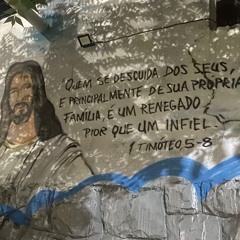 "QUEM SE DESCUIDA DOS SEUS,
E PRINCIPALMENTE DE SUA PROPRIA
FAMÍLIA, É UM RENEGADO,
PIOR QUE UM INFIEL."
1 TIMÓTEO, 5-8